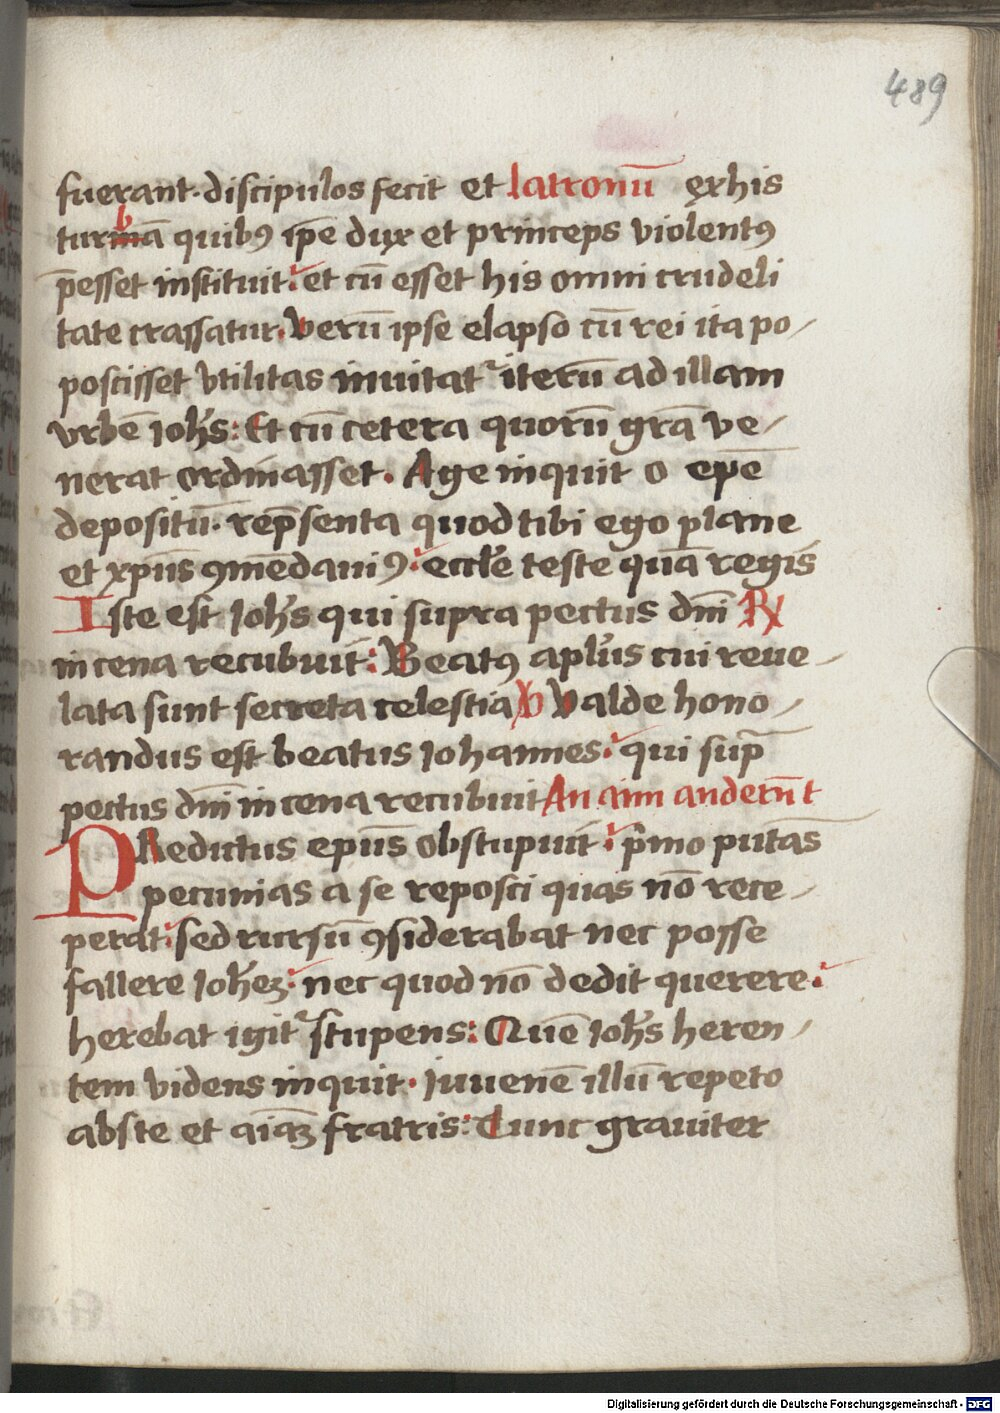 489
fuerant· discipulos fecit et latronū ex his
turmā quib9 ip̄e dux et princeps violent9
p̄esset instituit: et cū esset his omni crudeli
tate crassatur. Verū ipse elapso cū rei ita po-
poscisset vtilitas inuitat᷑ iterū ad illam
vrbē ioh̄s: Et cū cetera quorū gr̄a ve-
nerat ordinasset. Age inquit o ep̄e
depositū· rep̄senta quod tibi ego plane
et xp̄us 9mēdaui9: eccl̄e teste quā regis
Iste est Ioh̄s qui supra pectus dn̄i ℟
in cena recubuit: Beat9 apl̄us cui reue-
lata sunt secreta celestia ℣ Valde hono-
randus est beatus iohannes: qui supͣ
pectus dn̄i in cena recubuit
PRedictus ep̄us obstupuit: p̄mo putās
pecunias a se reposci quas nō rece-
perat: sed rursū 9siderabat nec posse
fallere ioh̄eꝫ: nec quod nō dedit querere:
herebat igit᷑ stupens: Quē ioh̄s heren-
tem videns inquit· iuuenē illū repeto
abs te et aīaꝫ fratris: Tunc grauiter
Digitalisierung gefördert durch die Deutsche Forschungsgemeinschaft - DFG